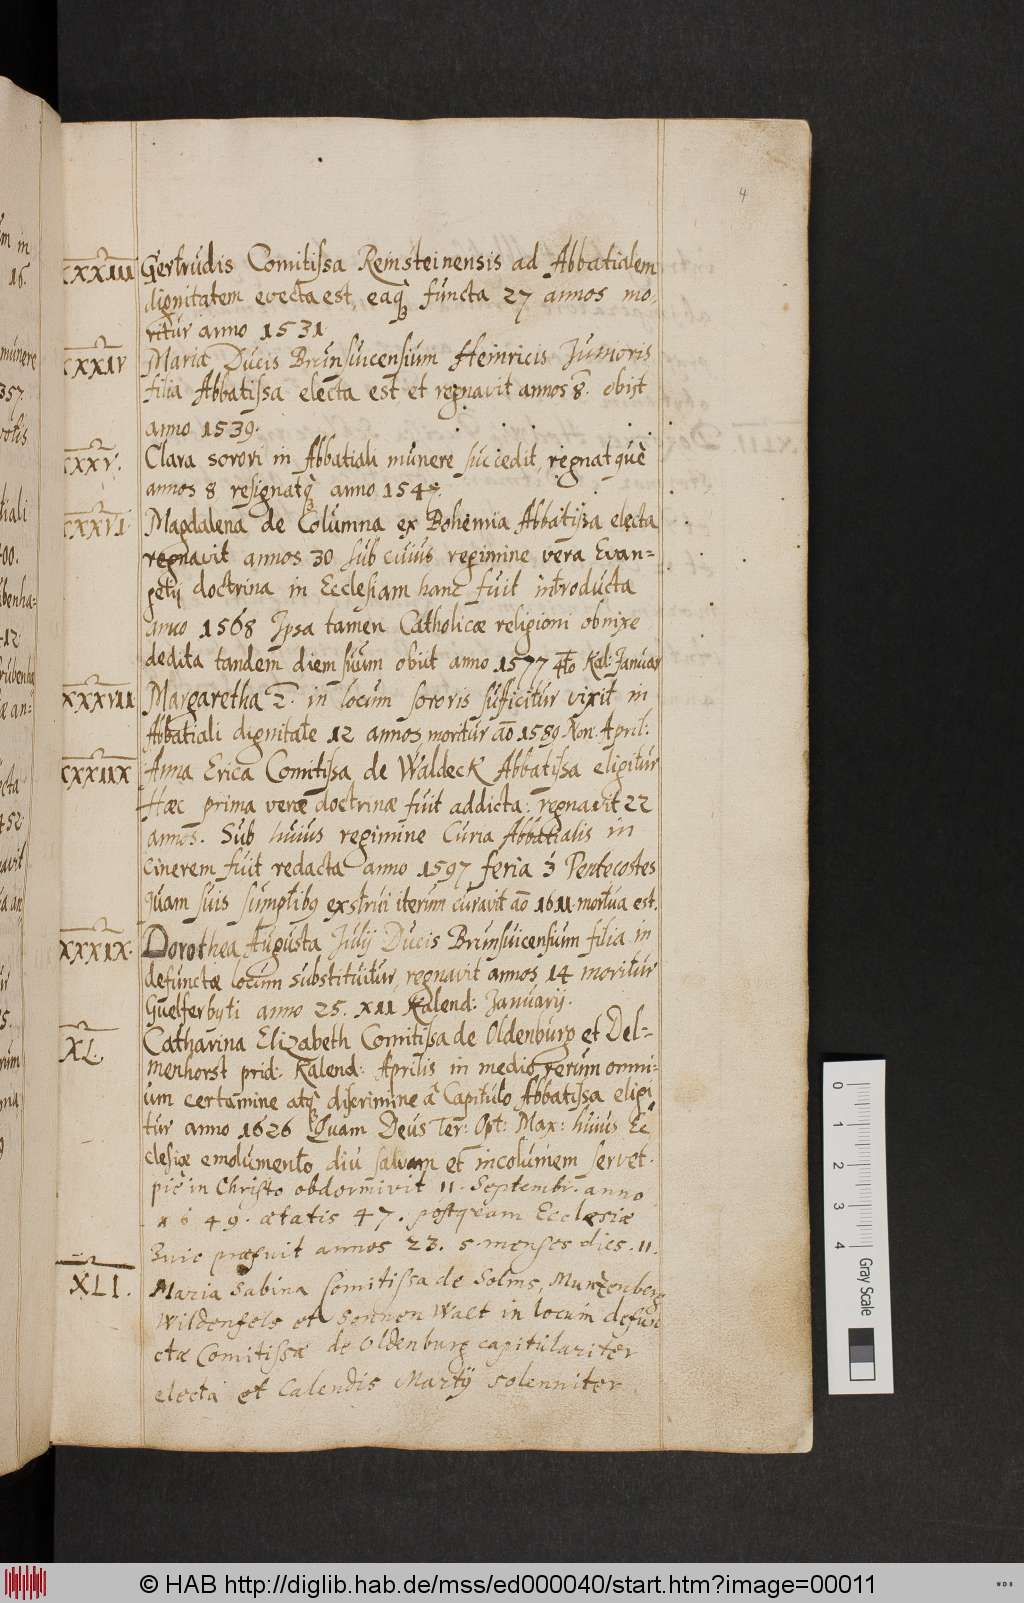 4
XXXIII Gertrudis Comitissa Reinsteinensis ad Abbatialem
dignitatem evecta est, eaq̢ functa 27 annos mo,
ritur anno 1531.
XXXIV Maria Ducis Brunsuicensium Heinricis Junioris
filia Abbatissa electa est et regnavit annos 8. obijt
anno 1539.
XXXV. Clara sorori in Abbatiali munere succedit, regnatquè
annos 8 resignatq̢ anno
XXXVI Magdalena de Columna ex Bohemia Abbatissa electa
regnavit annos 30 sub cuius regimine vera Evan=
gelij doctrina in Ecclesiam hanc fuit introducta
anno 1568 Ipsa tamen Catholicæ religioni obnixe
dedita tandem diem suum obiit anno 1577 4to Kal: Januar
XXXVII Margaretha 2. in locum sororis sufficitur vixit in
Abbatiali dignitate 12 annos moritur aō 1589 Non. April:
XXXIIX Anna Erica Comitissa de Waldeck Abbatissa eligitur
Hæc prima veræ doctrinæ fuit addicta: regnavit 22
annos. Sub huius regimine Curia Abbatialis in
cinerem fuit redacta anno 1597 feria 3 Pentecostes
quam suis sumptibg exstrui iterum curavit aō 1611 mortua est.
XXXIX. Dorothea Augusta Julij Ducis Brunsuicensium filia in
defunctæ locum substituitur, regnavit annos 14 moritur
Guelferbyti anno 25. XII Kalend: Januarij.
XL. Catharina Elizabeth Comitissa de Oldenburg et Del=
menhorst prid: Kalend: Aprilis in medio rerum omni=
um certamine atq̢ discrimine à Capitulo Abbatissa eligi
tur anno 1626 Quam Deus Ter: Opt: Max: huius Ec
clesiæ emolumento diu salvam et incolumem servet.
piè in Christo obdormivit 11. Septembr. anno
1649. ætatis 47. postquam Ecclesiæ
huic præfuit annos 23. 5. menses dies. 11.
XLI. Maria Sabina Comitissa de Solms, Muntzenberg
Wildenfels et Sonnen Walt in locum defun
ctæ Comitissæ de Oldenburg capitulariter
electa et Calendis Martij solenniter
0
1
2
3
4
Gray Scale
© HAB http://diglib.hab.de/mss/ed000040/start.htm?image=00011